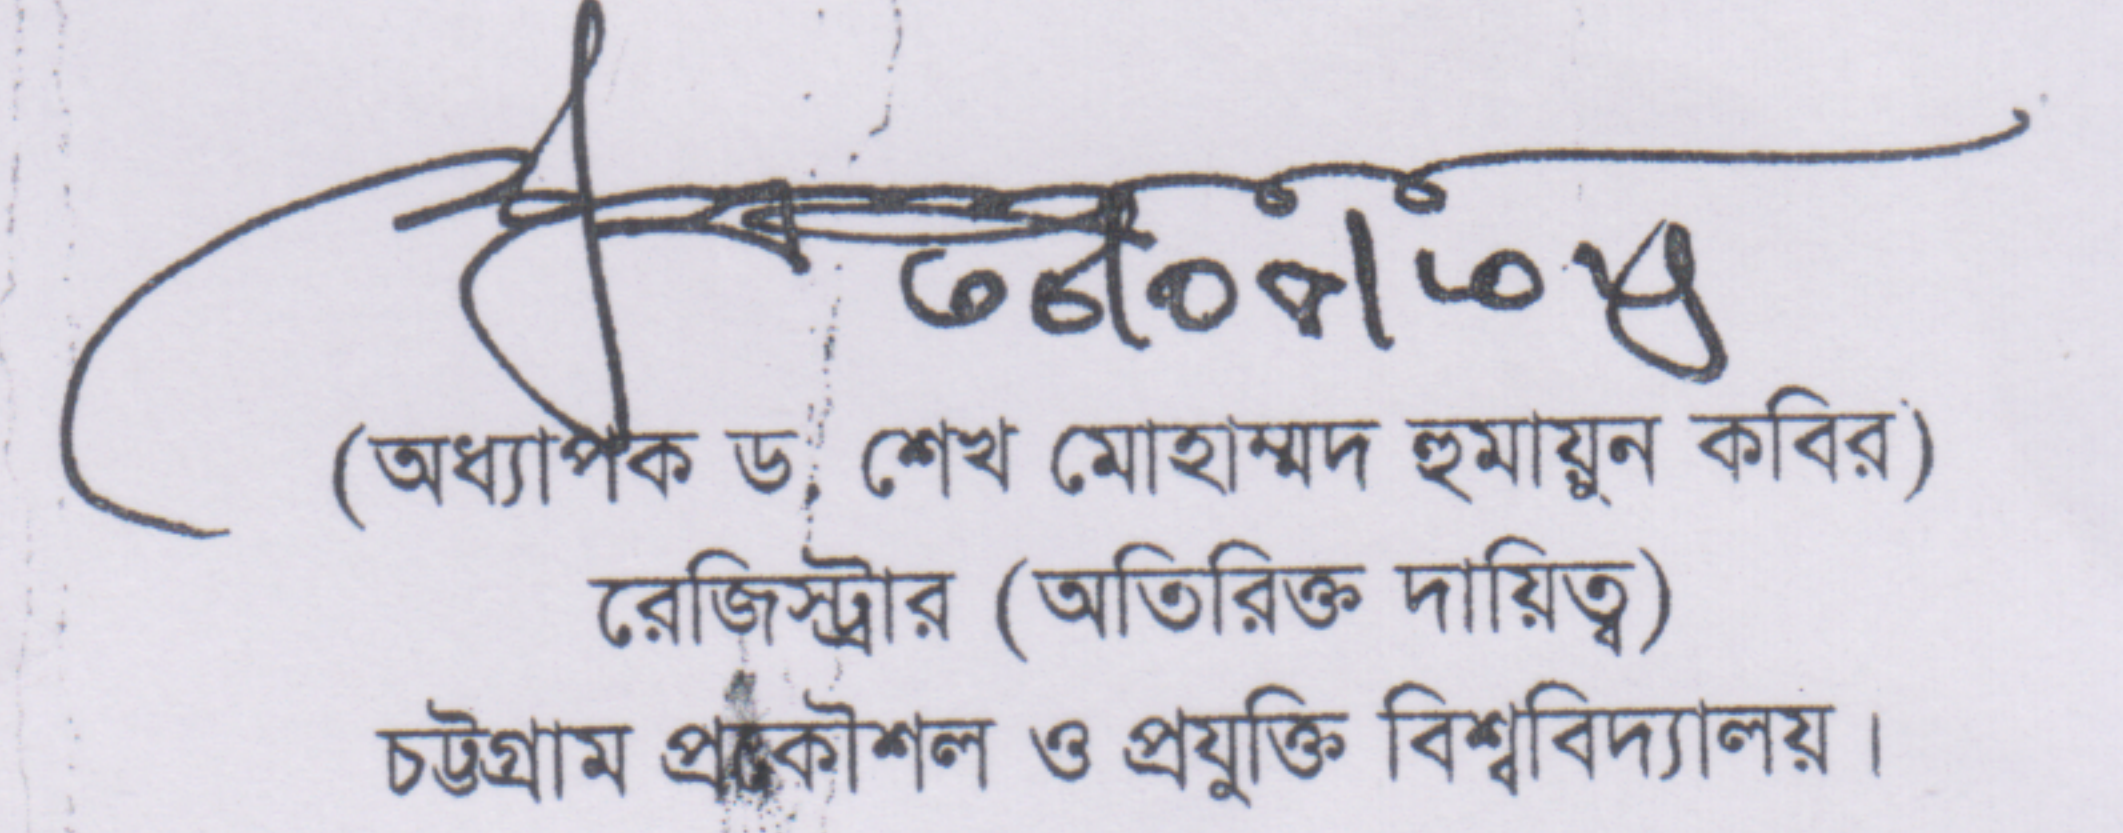 (অধ্যাপক ড. শেখ মোহাম্মদ হুমায়ুন কবির)
রেজিস্ট্রার (অতিরিক্ত দায়িত্ব)
চট্টগ্রাম প্রকৌশল ও প্রযুক্তি বিশ্ববিদ্যালয়।